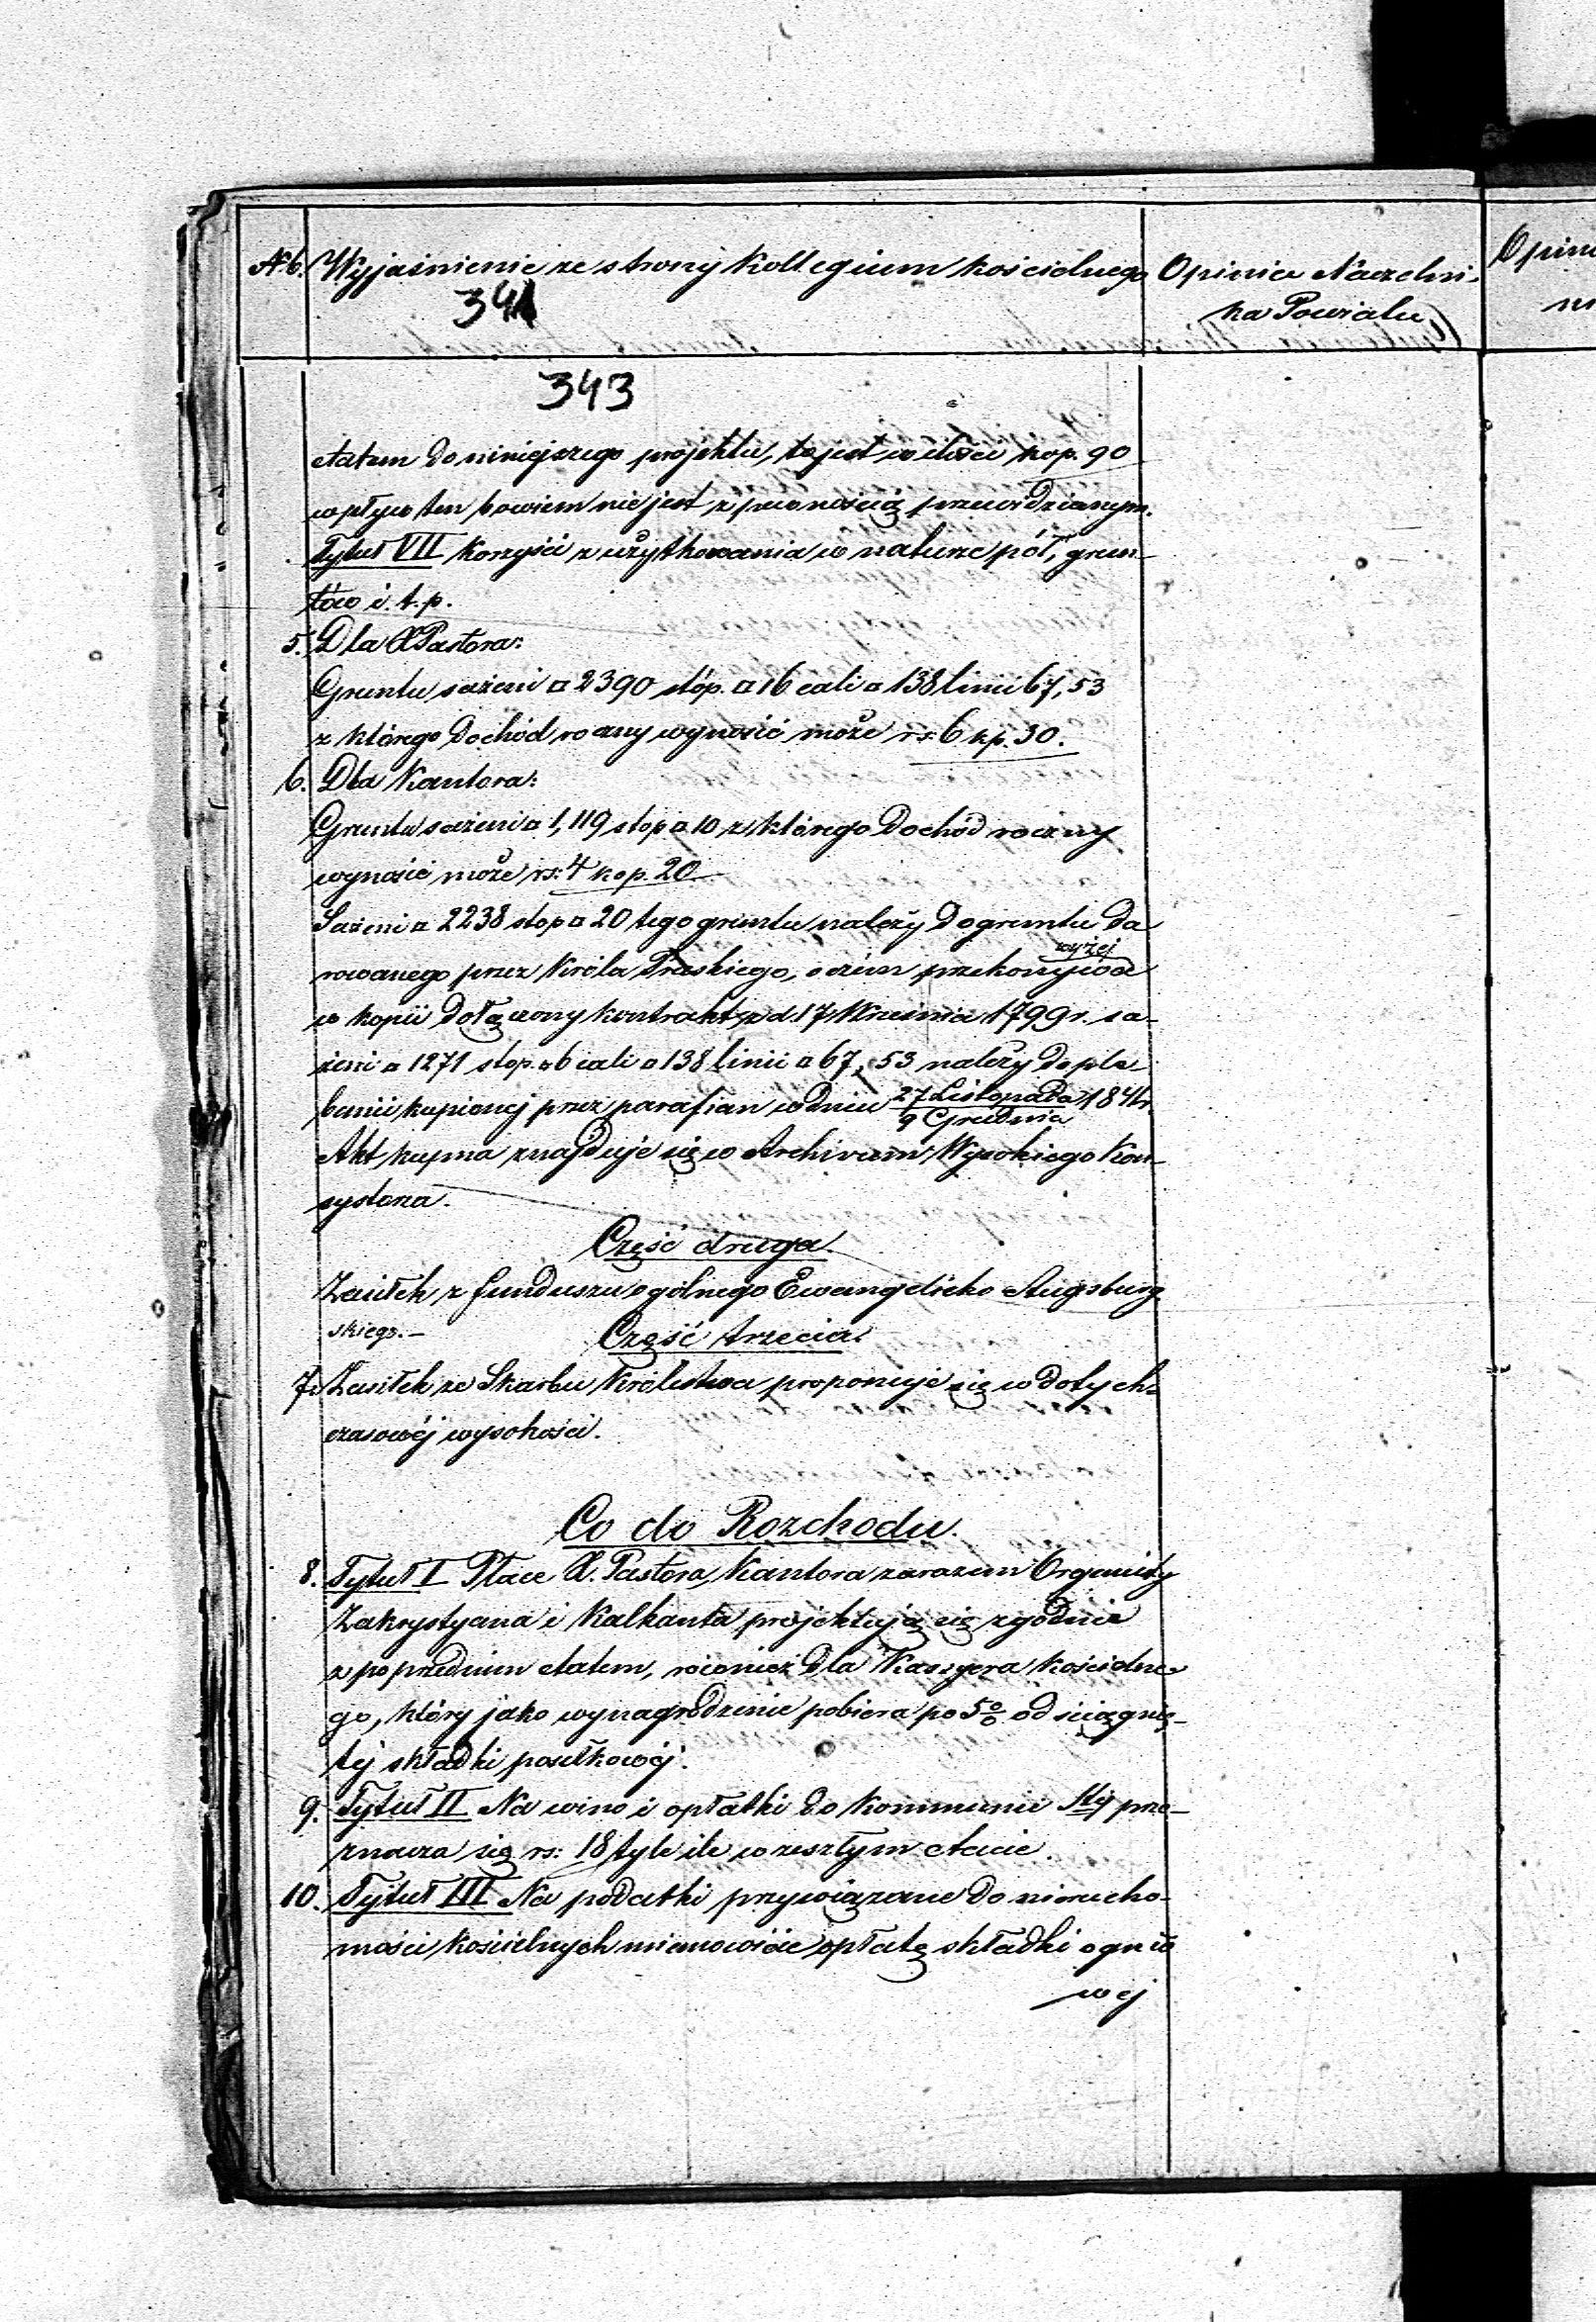 № 6. Wyjaśnienie ze strony Kollegium kościelnego
Opinia Naczelni-
ka Powiatu
Opini
341
343
etatem do niniejszego projektu, to jest w ilości kop. 90
wpływ ten bowiem nie jest z pewnością przewidzianym.
Tytuł VII Korzyści z użytkowania w naturze pól, grun-
tów i. t. p.
5. Dla X Pastora:
Gruntu sażeni □ 2390 stóp. □ 16 cali □ 138 linii 67,53
z którego dochód roczny wynosić może rs: 6 kp. 30.
6. Dla Kantora:
Gruntu sażeni □ 1,119 stop □ 10 z którego dochód roczny
wynosić może rs: 4 kop. 20
Sażeni □ 2238 stop □ 20 tego gruntu należy do gruntu da
rowanego przez Króla Pruskiego, o czém przekonywa
wyżej
w kopii dołączony kontrakt z d. 17 Września 1799 r. sa-
żeni □ 1271 stop. □ 6 cali □ 138 linii □ 67,53 należy do ple-
banii kupionej przez parafian w dniu 27 Listopada/9 Grudnia 184 r.
Akt kupna znajduje się w Archiwum Wysokiego Kon-
systorza.
Część druga.
Zasiłek z funduszu ogólnego Ewangelicko Augsburg
skiego.—
Część trzecia.
7. Zasiłek ze Skarbu Królestwa proponuje się w dotych-
czasowéj wysokości.
Co do Rozchodu.
8. Tytuł I Płace X. Pastora, Kantora zarazem Organisty
Zakrystyana i Kalkanta projektują się zgodnie
z poprzednim etatem, również dla Kassyera kościelne-
go, który jako wynagrodzenie pobiera po 5% od ściągnię-
tej składki posiłkowéj.
9. Tytuł II Na wino i opłatki do Kommunii Stéj prze-
znacza się rs: 18 tyle ile w zeszłym etacie.
10. Tytuł III Na podatki przywiązane do nierucho-
mości kościelnych mianowicie opłatę składki ognio
wej